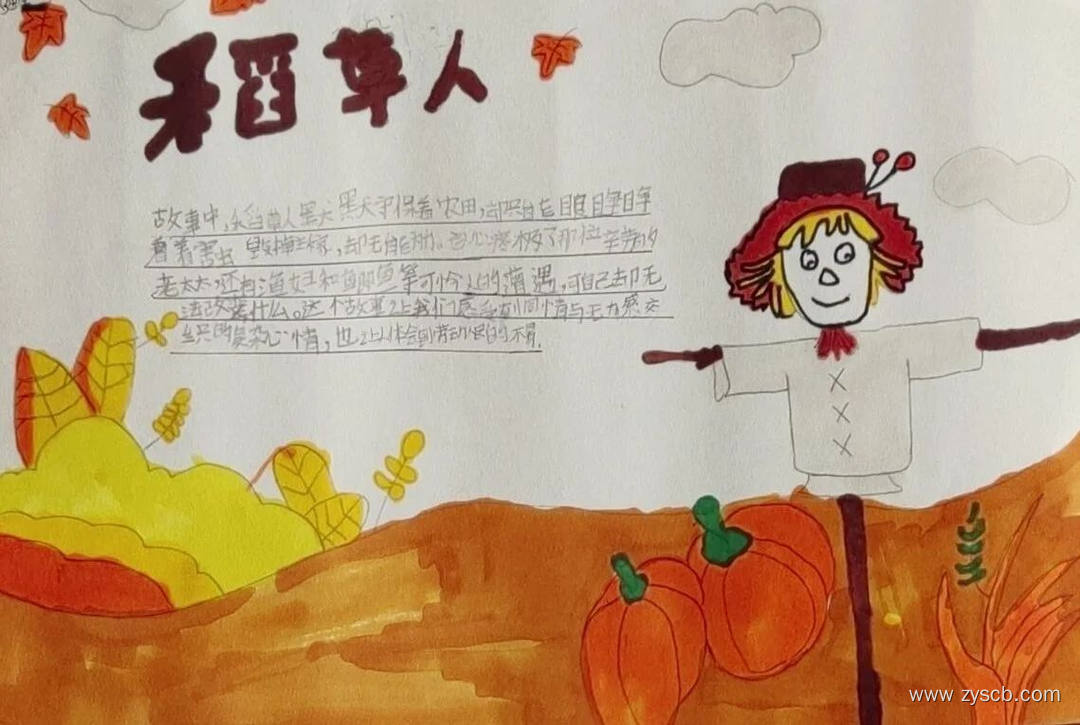 稻草人
故事中,稻草人黑天黑天守保着农田,却只自在目良目争目争
着着害虫毁掉庄稼,却无能力。也心疼极了那位辛劳的
老太太,还有渔妇和鲫鱼等可怜人的遭遇,可自己却无
法改变什么。这个故事让我们感受到同情与无力感交
织的复杂心情,也让人体会到劳动人民的不易.
www.zyscb.com